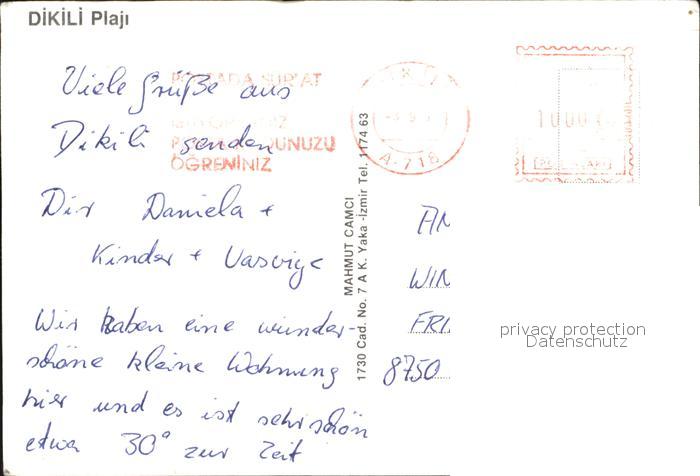 DİKİLİ Plajı
Viele Grüße aus
Dikili senden
Dir Daniela +
Kinder +
Wir haben eine wunder-
schöne kleine Wohnung
hier und es ist sehr schön
etwa 30° zur Zeit
POSTADA SÜR'AT
ÖĞRENİNİZ
A-718
1000
MAHMUT CAMCI
1730 Cad. No. 7 A K. Yaka-İzmir Tel. 1174 63
AN
WIN
FRI
8750
privacy protection
Datenschutz